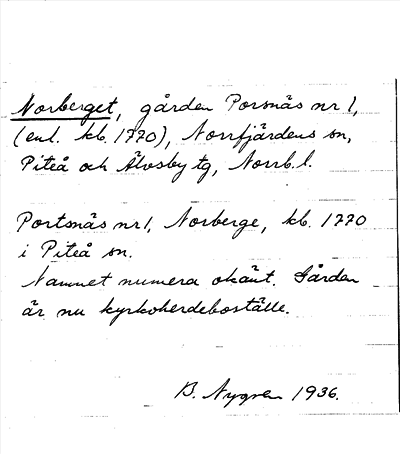 Norberget, gården Porsnäs nr 1,
(enl. kb. 1770), Norrfjärdens sn,
Piteå och Älvsby tg, Norrb. l.
Portsnäs nr 1, Norberge, kb. 1770
i Piteå sn.
Namnet numera okänt. Gården
är nu kyrkoherdeboställe.
B. Nygren 1936.